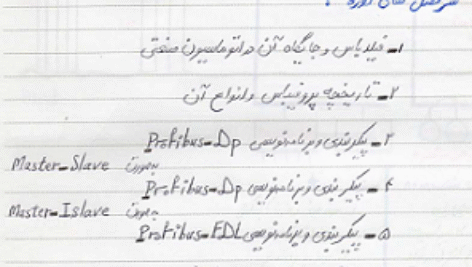 سرفصل های دوره :
۱- فیلدباس و جایگاه آن در اتوماسیون صنعتی
۲- تاریخچه پروفیباس و انواع آن
۳- پیکربندی و برنامه نویسی Profibus-Dp
بصورت Master-Slave
۴- پیکربندی و برنامه نویسی Profibus-Dp
بصورت Master-Islave
۵- پیکربندی و برنامه نویسی Profibus-FDL